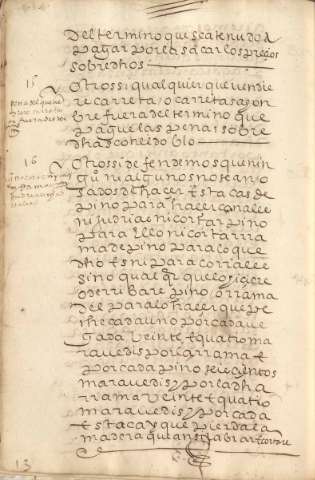 del termino que sea tenudo a
pagar por la saca los preçios
sobre dhos
15
Otrossi qualquier que vendie
re carreta / o carretas a gon
bre fuera del termino que
pague las penas sobre
dhas con el doblo
16
Otrossi defendemos que nin
guni algunos no sean o
sados de hazer estacas de
pino para hazer corralle
ni judria e ni cortar pino
para ello ni cortar ra
ma de pino para lo que
dho es ni para corralle
si no qualqr que lo siziere
o derribare pino / o rrama
del para lo hazer que pe
che cada uno por cada ve
gada veinte e quatro ma
ravedis por la rrama e
por cada pino seis çientos
maravedis / y por la dha
rrama veinte e quatro
maravedis / y por cada
estaca y que pierda la
madera que ansi labrar e cortare
13